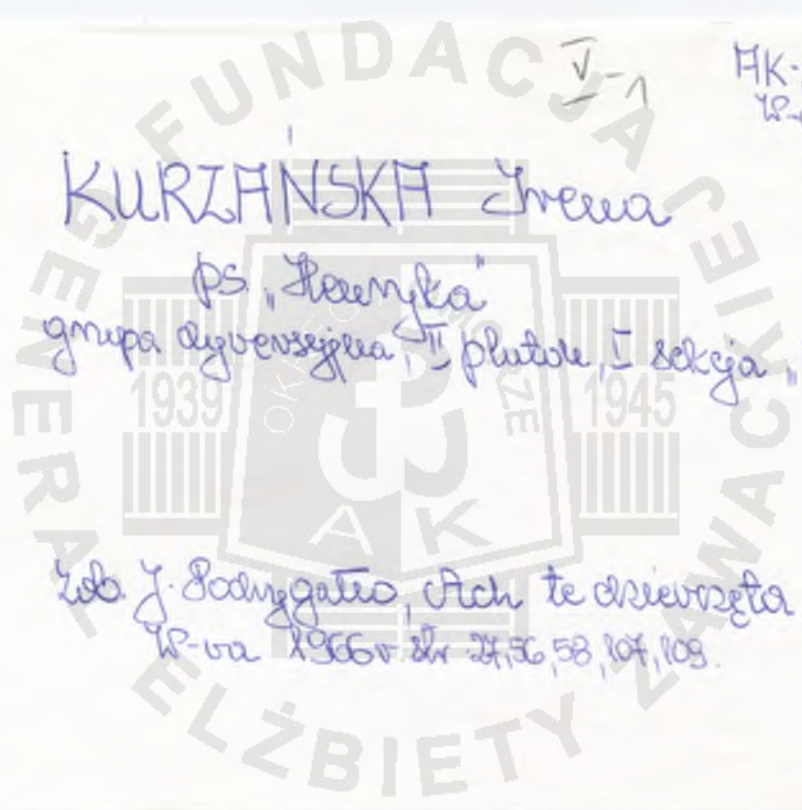 V-1 AK-
W-
KURZAŃSKA Irena
ps. „Henryka"
grupa dywersyjna, II pluton, I sekcja „
Zob. J. Podrygałło, Ach te dziewczęta
W-wa 1966 r. str. 27, 56, 58, 107, 109.
FUNDACJA GENERAŁ ELŻBIETY ZAWACKIEJ
1939 1945
AK